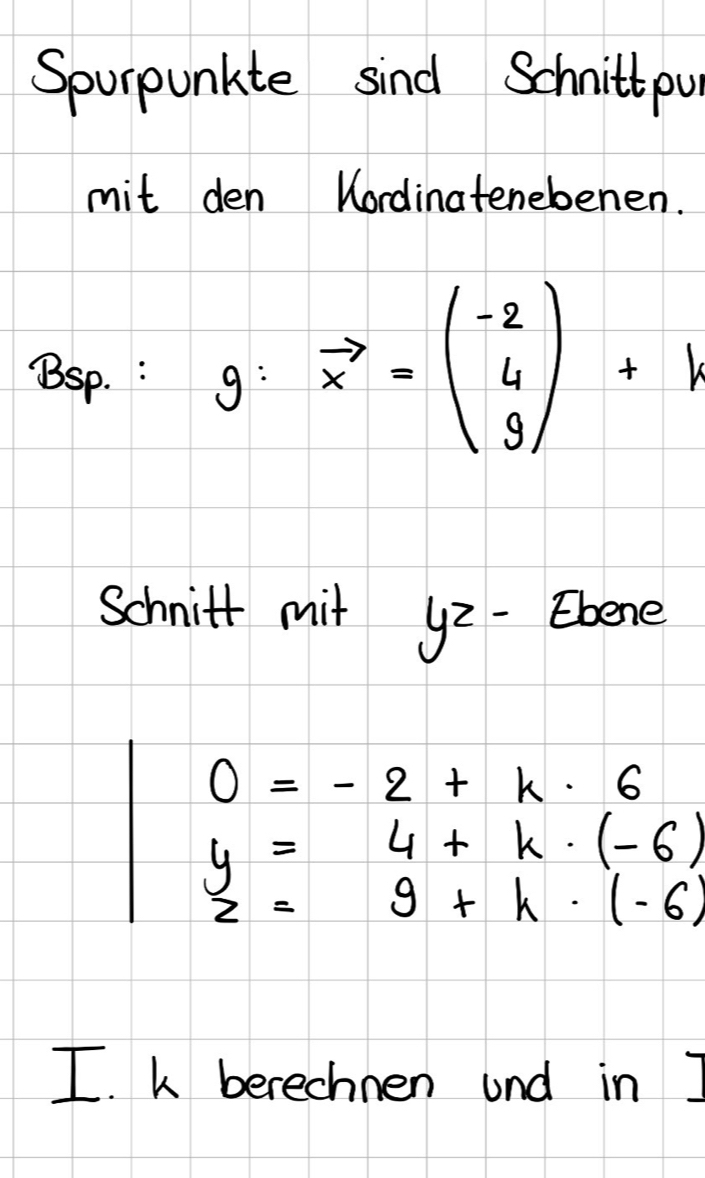 Spurpunkte sind Schnittpun
mit den Kordinatenebenen.
Bsp.: g: x⃗ = (-2 4 9) + k
Schnitt mit yz-Ebene
0 = -2 + k · 6
y = 4 + k · (-6)
z = 9 + k · (-6)
I. k berechnen und in I